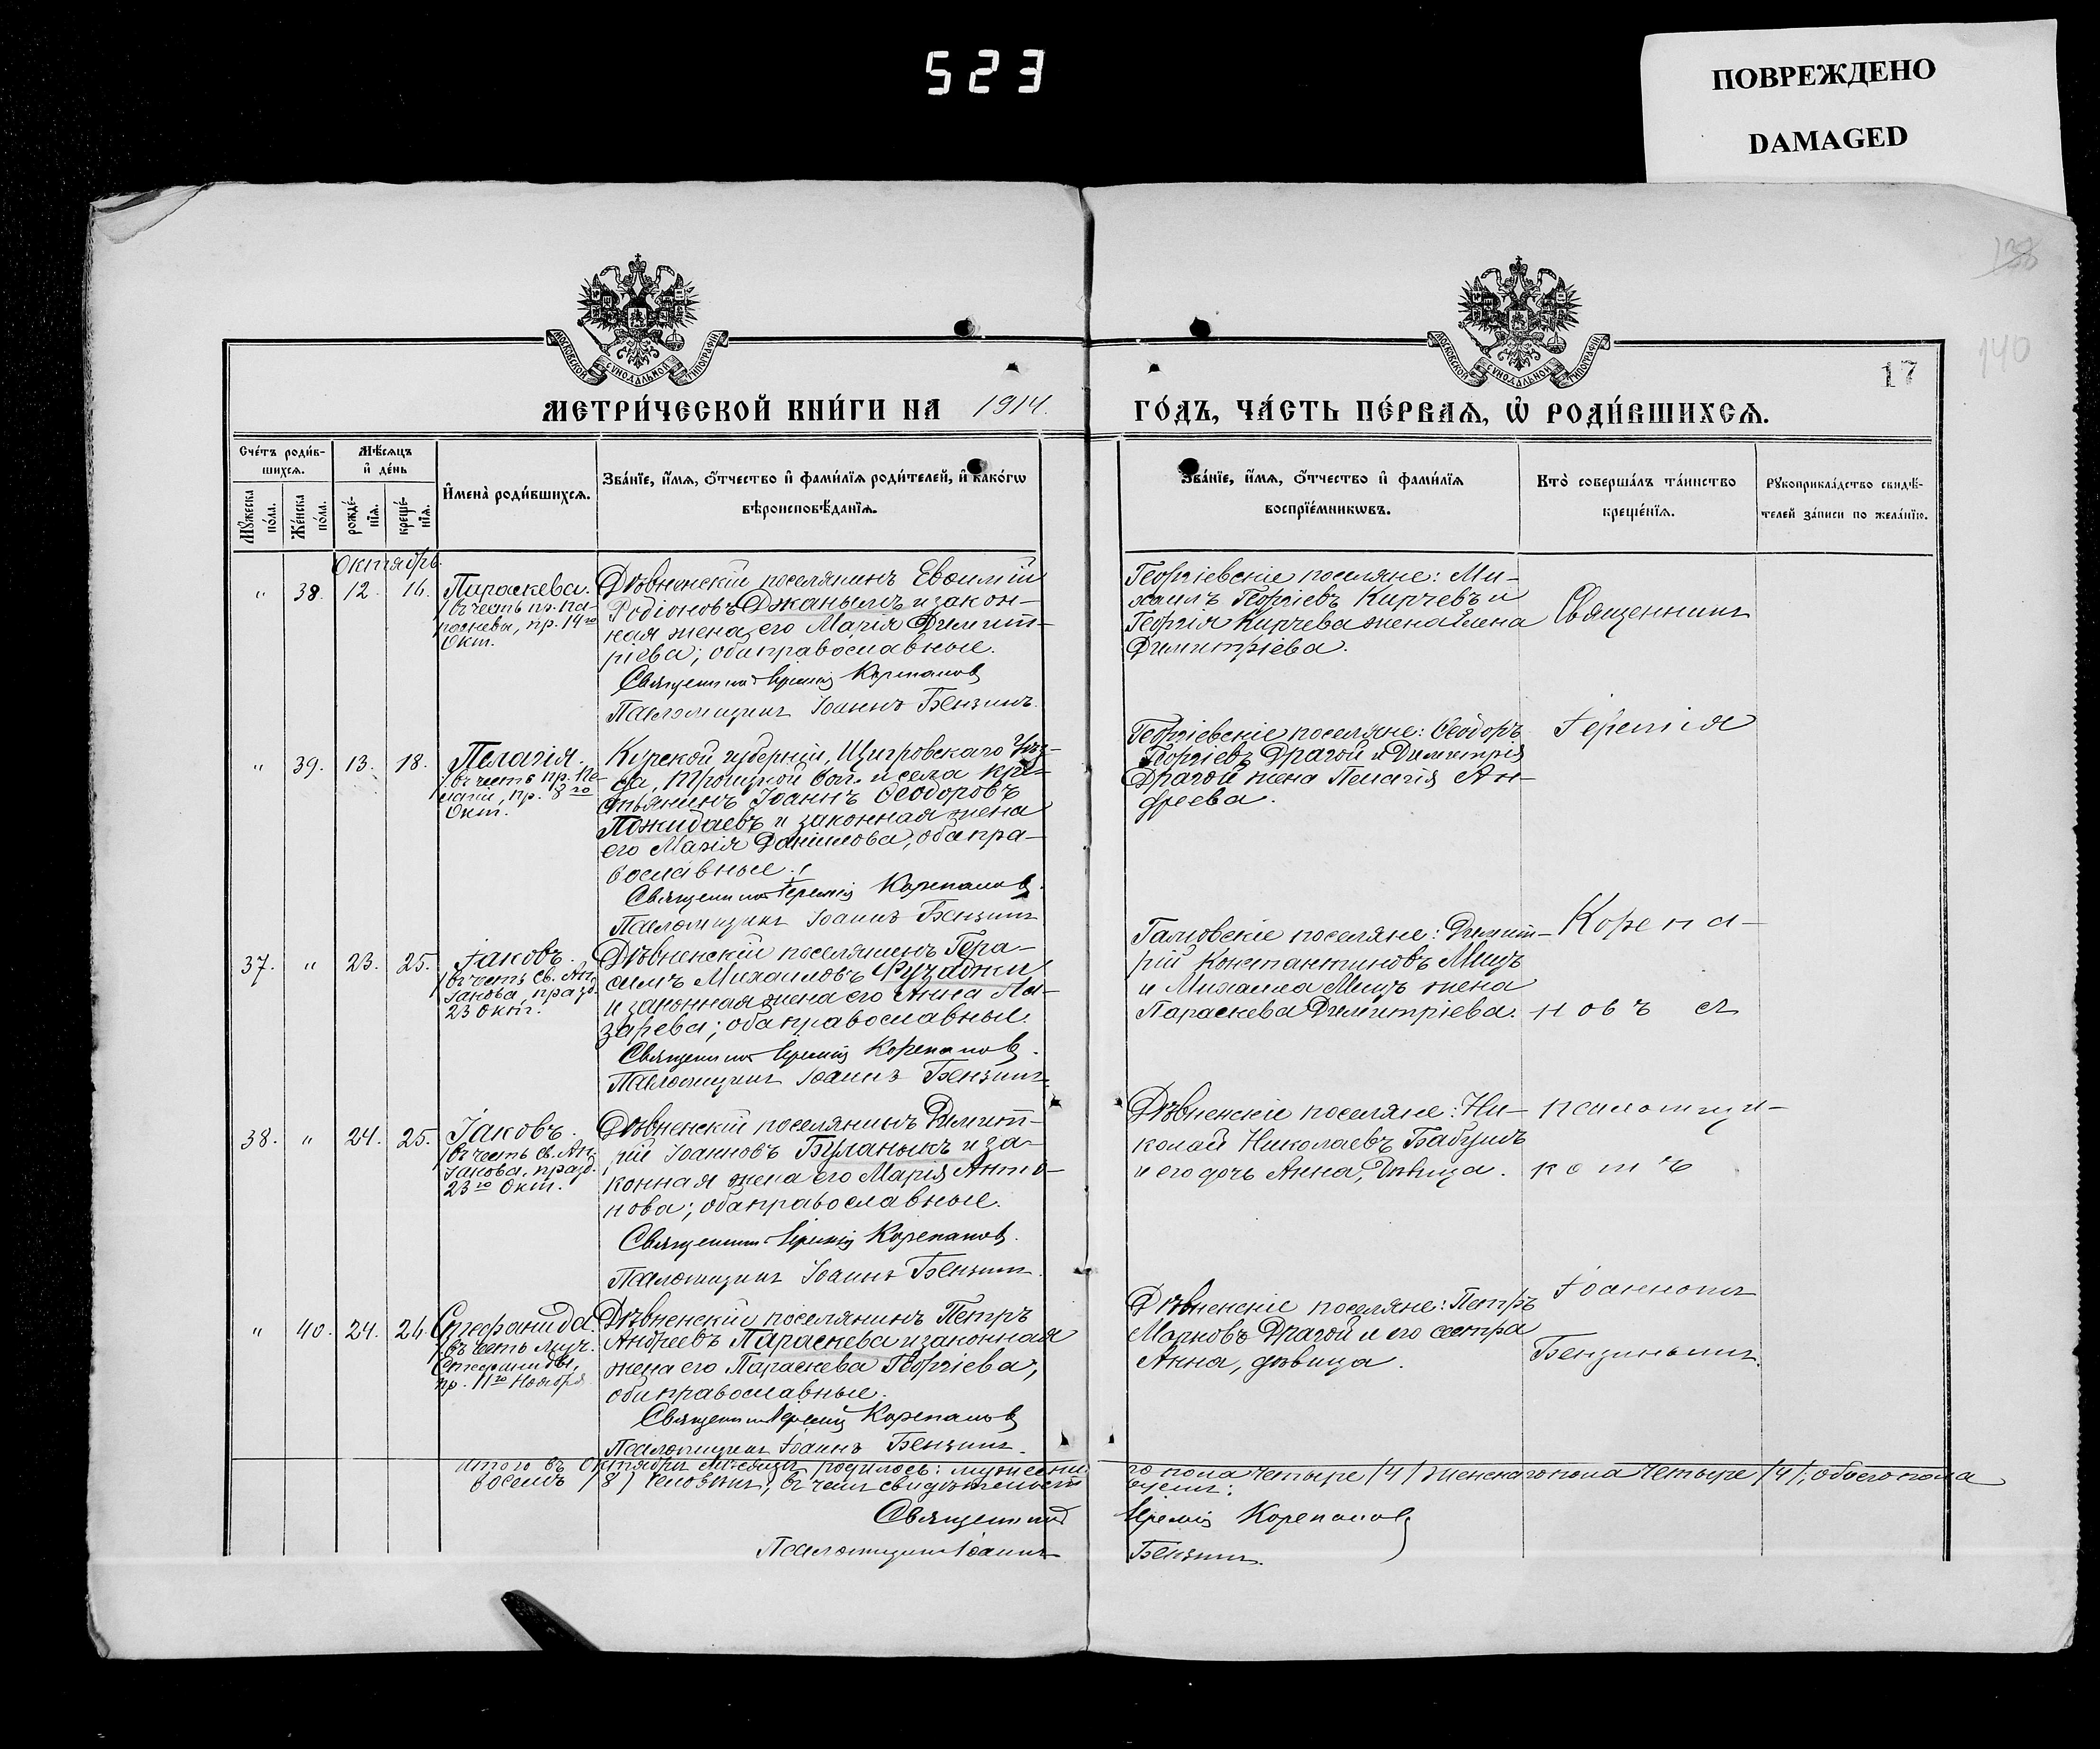 523
ПОВРЕЖДЕНО
DAMAGED
138
140
17
МОСКОВСКОЙ СѴНОДАЛЬНОЙ ТИПОГРАФІИ
МОСКОВСКОЙ СѴНОДАЛЬНОЙ ТИПОГРАФІИ
МЕТРИ́ЧЕСКОЙ КНИ́ГИ НА 1914. ГО́ДЪ, ЧА́СТЬ ПЕ́РВАѦ, Ѡ҆ РОДИ́ВШИХСѦ.
Сче́тъ роди́в-
шихсѧ.
Мꙋ́жеска по́ла.
Же́нска по́ла.
Мѣ́сѧцъ
и҆ де́нь
рожде́-
нїѧ.
креще́-
нїѧ.
И҆мена̀ роди́вшихсѧ.
Зва́нїе, и҆́мѧ, ѻ҆́тчество и҆ фами́лїѧ роди́телей, и҆ како́гѡ
вѣроисповѣ́данїѧ.
Зва́нїе, и҆́мѧ, ѻ҆́тчество и҆ фами́лїѧ
воспрїе́мникѡвъ.
Кто̀ соверша́лъ та́инство
креще́нїѧ.
Рꙋкоприкла́дство свидѣ́-
телей за́писи по жела́нїю.
Октябрь
" 38. 12. 16.
Параскева.
/въ честь пр. Па-
раскевы, пр. 14го
Окт.
Дѣвненскій поселянинъ Евѳимій
Родіоновъ Джанымъ и закон-
ная жена его Марія Димит-
ріева; оба православные.
Священникъ Іеремія Корепановъ
Псаломщикъ Іоаннъ Бензинъ.
Георгіевскіе поселяне: Ми-
хаилъ Георгіевъ Кирчевъ и
Георгія Кирчева жена Елена
Димитріева.
Священникъ
" 39. 13. 18.
Пелагія.
/въ честь пр. Пе-
лагіи, пр. 8го
Окт.
Курской губерніи, Щигровскаго Уѣз-
да, Троицкой вол. и села кре-
стьянинъ Іоаннъ Ѳеодоровъ
Пожидаевъ и законная жена
его Марія Даніилова; оба пра-
вославные.
Священникъ Іеремія Корепановъ.
Псаломщикъ Іоаннъ Бензинъ
Георгіевскіе поселяне: Ѳеодоръ
Георгіевъ Драгой и Димитрія
Драгой жена Пелагія Ан-
дреева.
Іеремія
37. " 23. 25.
Іаковъ.
/въ честь Св. Ап.
Іакова, празд.
23 Окт.
Дѣвненскій поселянинъ Гера-
симъ Михаиловъ Фучаджи
и законная жена его Анна Ла-
зарева; оба православные.
Священникъ Іеремія Корепановъ.
Псаломщикъ Іоаннъ Бензинъ.
поселяне: Димит-
рій Константиновъ Мицъ
и Михаила Мицъ жена
Параскева Димитріева.
Корепа-
новъ съ
38. " 24. 25.
Іаковъ.
/въ честь Св. Ап.
Іакова, празд.
23го Окт.
Дѣвненскій поселянинъ Димит-
рій Іоанновъ Буланыкъ и за-
конная жена его Марія Анто-
нова; оба православные.
Священникъ Іеремія Корепановъ.
Псаломщикъ Іоаннъ Бензинъ.
Дѣвненскіе поселяне: Ни-
колай Николаевъ Бабуцъ
и его дочь Анна, дѣвица.
псаломщи-
комъ
" 40. 24. 26.
Стефанида.
/въ честь муч.
Стефаниды,
пр. 11го Ноября
Дѣвненскій поселянинъ Петръ
Андреевъ Параскева и законная
жена его Параскева Георгіева;
оба православные.
Священникъ Іеремія Корепановъ
Псаломщикъ Іоаннъ Бензинъ.
Дѣвненскіе поселяне: Петръ
Марковъ Драгой и его сестра
Анна, дѣвица.
Іоанномъ
Бензинымъ.
Итого въ Октябрѣ мѣсяцѣ родилось: мужска го пола четыре /4/ женскаго пола четыре /4/, обоего пола
восемь /8/ человѣкъ, въ чемъ свидѣтельств уемъ:
Священникъ Іеремія Корепановъ
Псаломщикъ Іоаннъ Бензинъ.